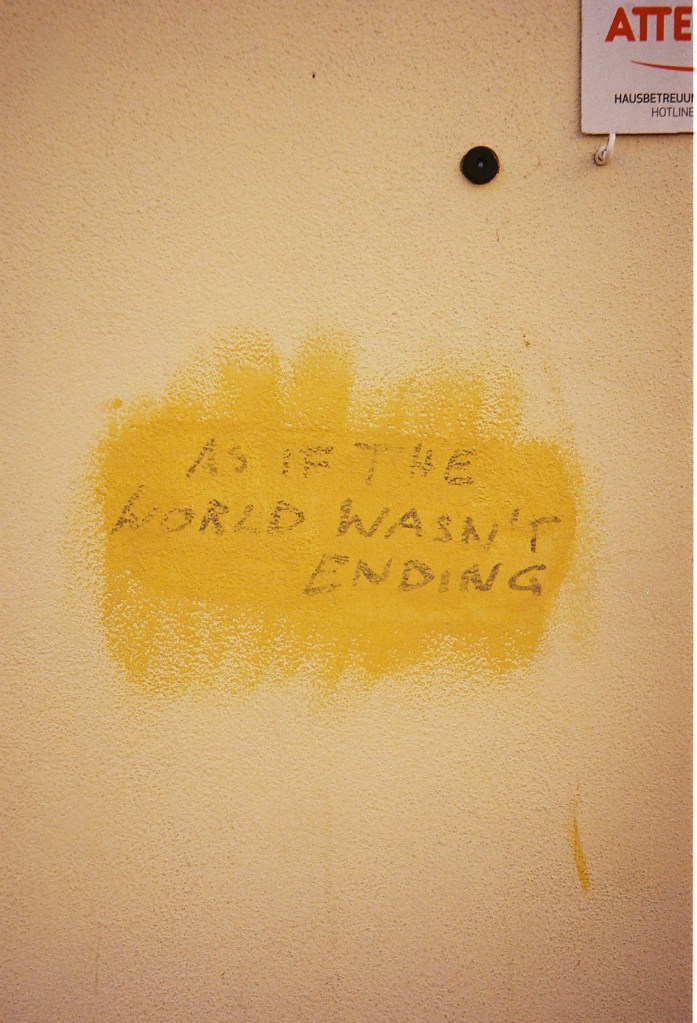 ATTE
HAUSBETREUU
HOTLINE
AS IF THE
WORLD WASN'T
ENDING